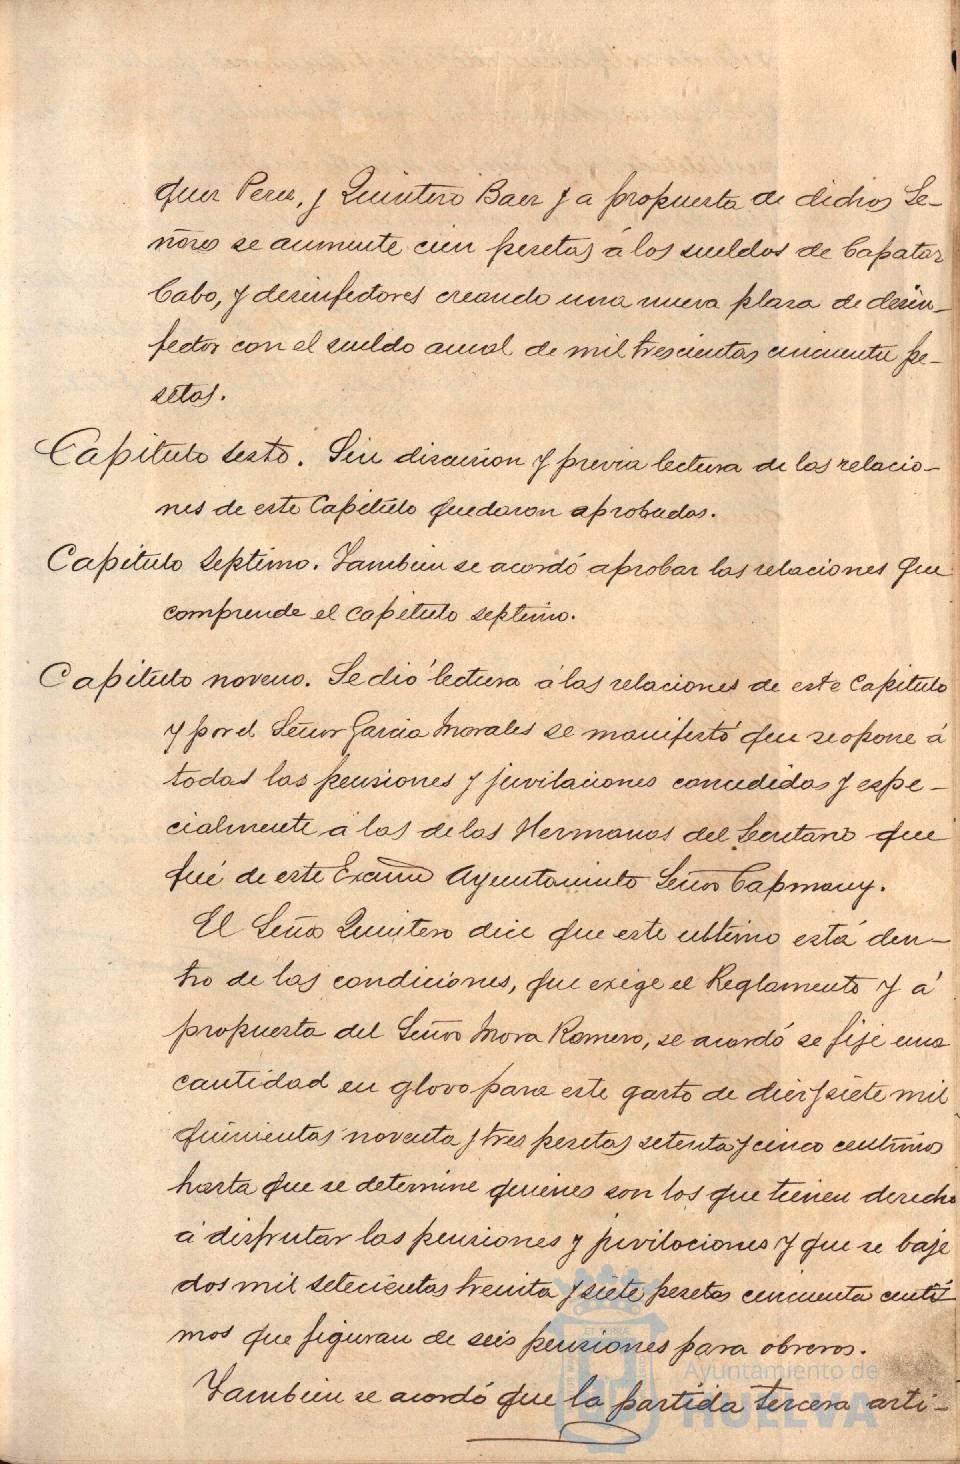 quez Perez, y Quintero Baez y a propuesta de dichos Se-
ñores se aumente cien pesetas á los sueldos de Capataz
Cabo, y desinfectores creando una nueva plaza de desin-
fector con el sueldo anual de mil trescientas cincuenta pe-
setas.
Capitulo sesto. Sin discusion y previa lectura de las relacio-
nes de este Capitulo quedaron aprobadas.
Capitulo septimo. Tambien se acordó aprobar las relaciones que
comprende el capitulo septimo.
Capitulo noveno. Se dió lectura á las relaciones de este Capitulo
y por el Señor Garcia Morales se manifestó que se opone á
todas las pensiones y juvilaciones concedidas y espe-
cialmente á las de las Hermanas del Secretario que
fué de este Excmo Ayuntamiento Señor Capmany.
El Señor Quintero dice que este ultimo está den-
tro de las condiciones, que exige el Reglamento y á
propuesta del Señor Mora Romero, se acordó se fije una
cantidad en glovo para este gasto de diez y siete mil
quinientas noventa y tres pesetas setenta y cinco centimos
hasta que se determine quienes son los que tienen derecho
á disfrutar las pensiones y juvilaciones y que se baje
dos mil setecientas treinta y siete pesetas cincuenta centi-
mos que figuran de seis pensiones para obreros.
Tambien se acordó que la partida tercera arti-
Ayuntamiento de
HUELVA